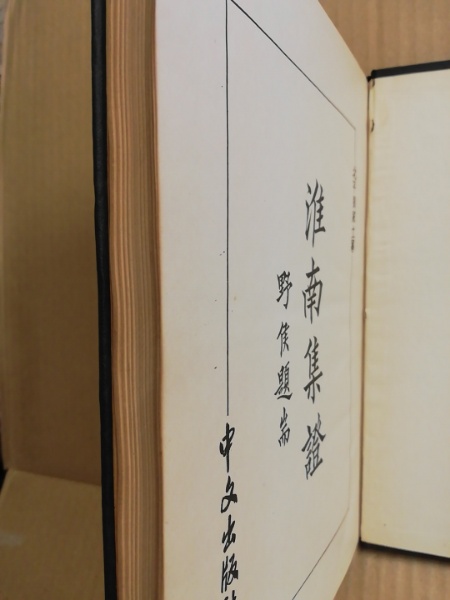 淮南集證
野侯題耑
中文出版